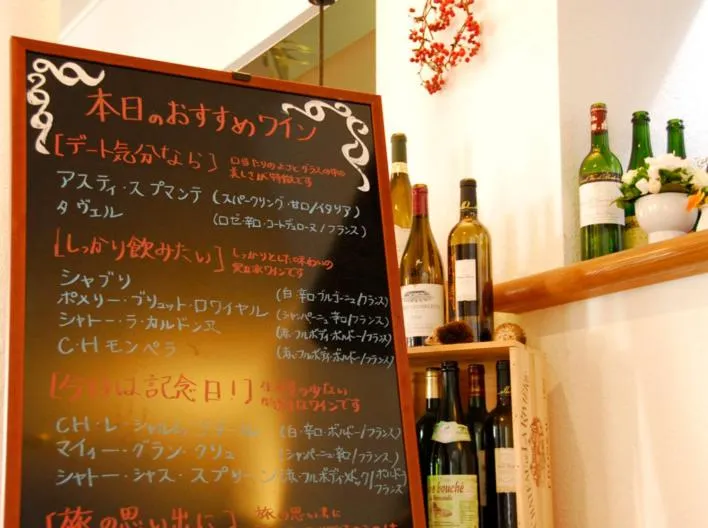 本日のおすすめワイン
[デート気分なら] 口当たりのよさとグラスの中の
美しさが特徴です
アスティ・スプマンテ (スパークリング・甘口/イタリア)
タヴェル (ロゼ・辛口・コートデュローヌ/フランス)
[しっかり飲みたい] しっかりとした味わいの
実力派ワインです
シャブリ (白・辛口・ブルゴーニュ/フランス)
ポメリー・ブリュット・ロワイヤル (シャンパーニュ・辛口/フランス)
シャトー・ラ・カルドンヌ (赤・フルボディ・ボルドー/フランス)
C.H モンペラ (赤・フルボディ・ボルドー/フランス)
[今日は記念日!] の少ない
なワインです
CH・レ・シャルム (白・辛口・ボルドー/フランス)
マイィー・グラン・クリュ (シャンパーニュ・辛口/フランス)
シャトー・シャス・スプリーン (赤・フルボディ・メドック/ボルドー
フランス)
[旅の思い出に] 旅の思い出に
bouché